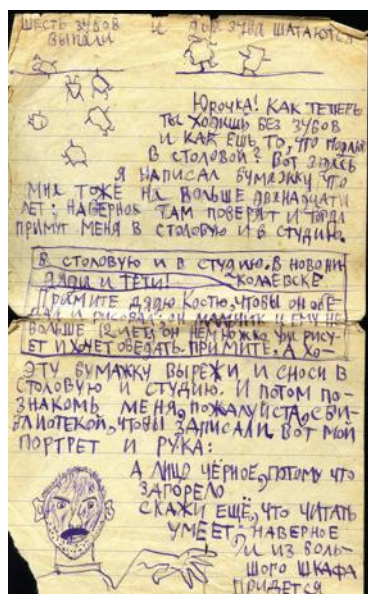 ШЕСТЬ ЗУБОВ И ДВА ЗУБА ШАТАЮТСЯ
ВЫПАЛИ
ЮРОЧКА! КАК ТЕПЕРЬ
ТЫ ХОДИШЬ БЕЗ ЗУБОВ
И КАК ЕШЬ ТО, ЧТО
В СТОЛОВОЙ? ВОТ ЗДЕСЬ
Я НАПИСАЛ БУМАЖКУ, ЧТО
МНЕ ТОЖЕ НЕ БОЛЬШЕ ДВЕНАДЦАТИ
ЛЕТ; НАВЕРНОЕ ТАМ ПОВЕРЯТ И ТОГДА
ПРИМУТ МЕНЯ В СТОЛОВУЮ И В СТУДИЮ.
В СТОЛОВУЮ И В СТУДИЮ. В НОВОНИ
ДЯДИ И ТЁТИ! КОЛАЕВСКЕ
ПРИМИТЕ ДЯДЮ КОСТЮ, ЧТОБЫ ОН ОБЕ-
ДАЛ И РИСОВАЛ: ОН МАЛЬЧИК И ЕМУ НЕ
БОЛЬШЕ 12 ЛЕТ; ОН НЕМНОЖКО УЖ РИСУ-
ЕТ И ХОЧЕТ ОБЕДАТЬ. ПРИМИТЕ, А ХО-
ЭТУ БУМАЖКУ ВЫРЕЖИ И СНОСИ В
СТОЛОВУЮ И СТУДИЮ. И ПОТОМ ПО-
ЗНАКОМЬ МЕНЯ, ПОЖАЛУЙСТА, С БИ-
ЛИОТЕКОЙ, ЧТОБЫ ЗАПИСАЛИ. ВОТ МОЙ
ПОРТРЕТ И РУКА:
А ЛИЦО ЧЁРНОЕ, ПОТОМУ ЧТО
ЗАГОРЕЛО
СКАЖИ ЕЩЁ, ЧТО ЧИТАТЬ
УМЕЕТ; НАВЕРНОЕ
И ИЗ БОЛЬ-
ШОГО ШКАФА
ПРИДЕТСЯ